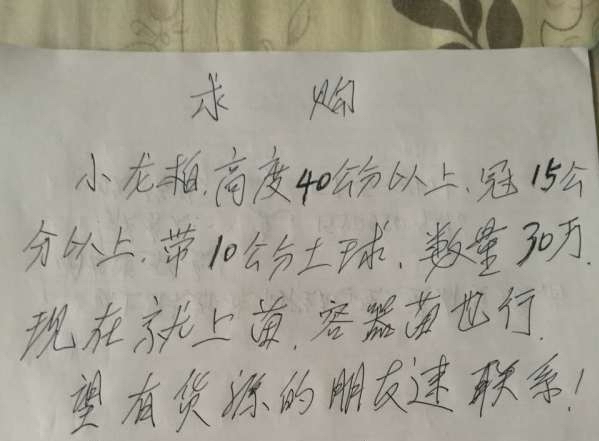 求购
小龙柏,高度40公分以上,冠15公
分以上,带10公分土球,数量30万.
现在就上苗,容器苗也行.
望有货源的朋友速联系!